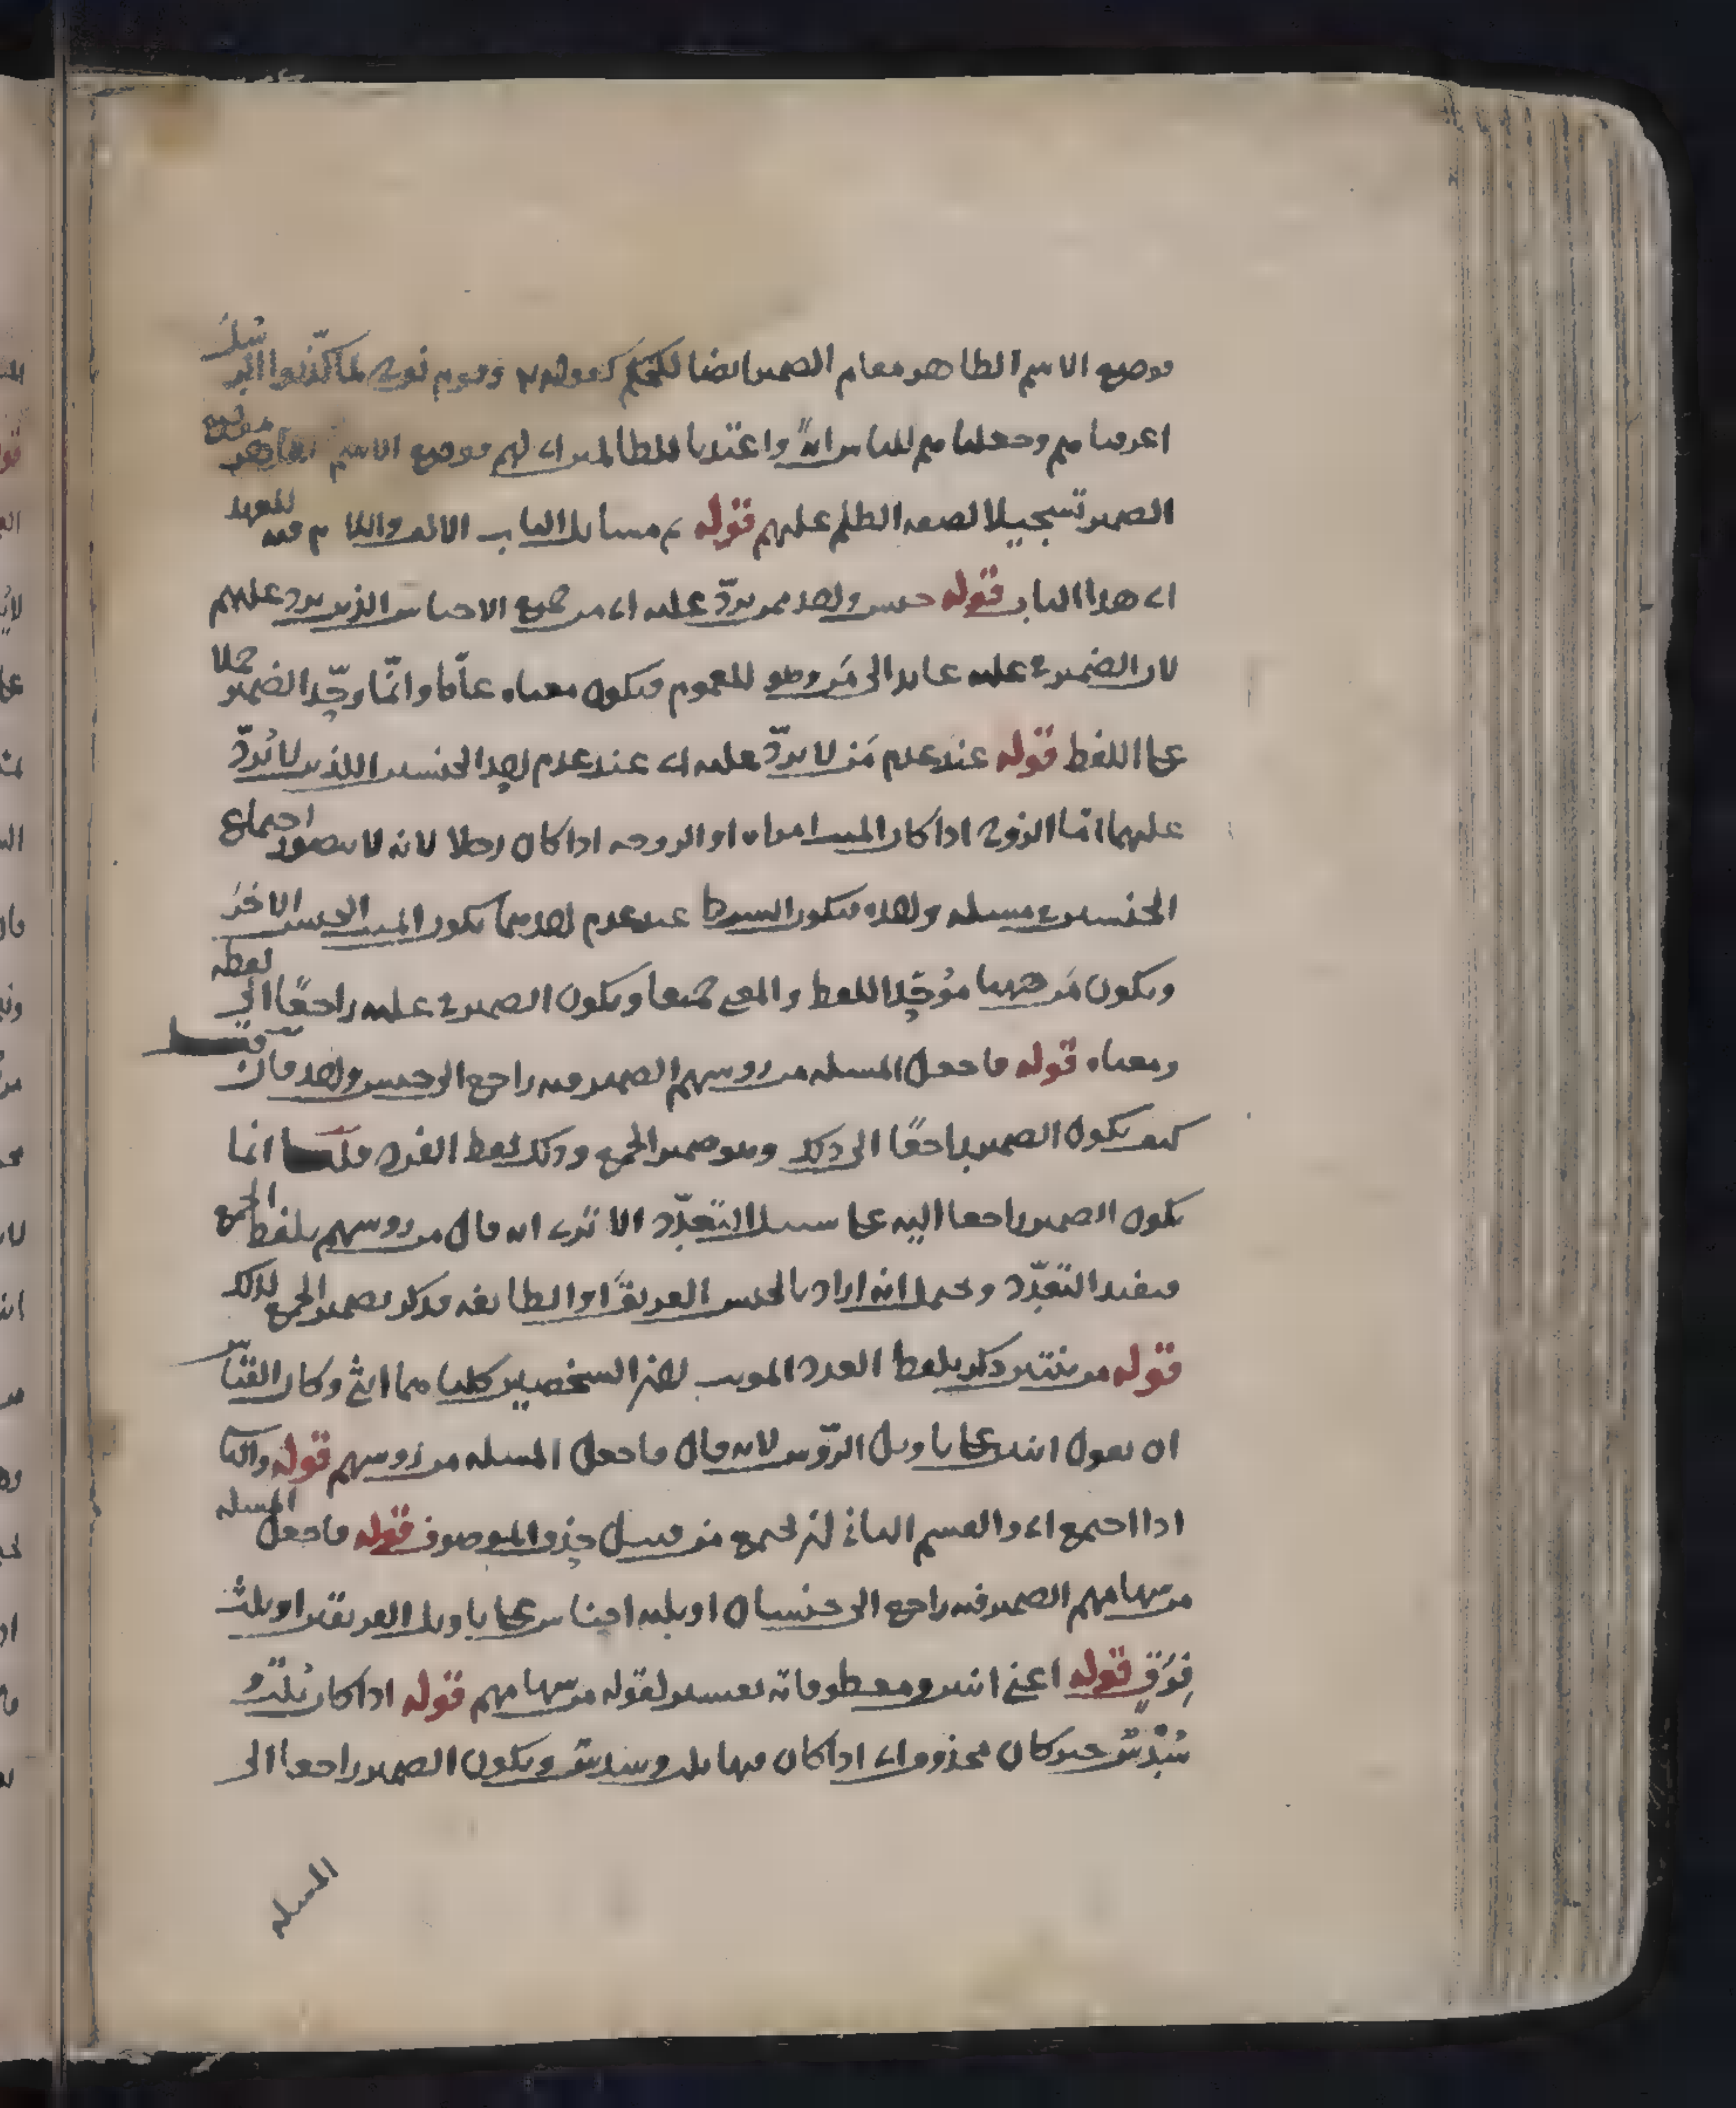 فوضع الاسم الظاهر مقام الضمير ايضا لكقوله وقوم نوح لما كذبوا الرسل
اغرقناهم وجعلناهم للناس اية واعتدنا للظالمين اي لهم فوضع الاسم الظاهر موضع
الضمير تسجيلا لصفة الظلم عليهم قوله ثم مسائل الباب الالف واللام فيه للعهد
اي هذا الباب قوله جنس واحد ممن يردّ عليه اي من جميع الاجناس الذين يرد عليهم
لان الضمير في عليه عايد الى مَن وهو للعموم فيكون معناه عامّا وانّما وحّد الضمير حملا
على اللفظ قوله عند عدم مَن لا يردّ عليه اي عند عدم احد الجنسين اللذين لا يُردّ
عليهما امّا الزوج اذا كان الميت امراة او الزوجه اذا كان رجلا لانه لا يتصور اجتماع
الجنسين في مسئله واحده فيكون الشرط عند عدم احدهما يكون الميت الجنس الاخَر
ويكون مَن ههنا موُحّد اللفظ والمعنى جميعا ويكون الضمير في عليه راجعًا الى لفظه
ومعناه قوله فاجعل المسئله من روسهم الضمير فيه راجع الى جنس واحد فان قيل
كيف يكون الضمير راجعًا الى ذلك وهو ضمير الجمع وذلك لفظ الفرد قلنا انما
يكون الضمير راجعا اليه على سبيل التعدّد الا ترى انه قال من روسهم بلفظ الجمع
فيفيد التعدّد ويحتمل انه اراد بالجنس الفريق او الطايفه فذكر بضمير الجمع لذلك
قوله من ثنتين ذكر بلفظ العدد المونث لان الشخصين كلتاهما انثى وكان القياس
ان يقول اثنين على تاويل الرّوس لانه قال فاجعل المسئله من رُوسهم قوله والثا
اذا اجتمع اي والقسم الثاني ان يجتمع من قبيل حذف الموصوف قوله فاجعل المسئله
من سهامهم الضمير فيه راجع الى جنسان او ثلثه اجناس على تاويل الفريقين او ثلث
فِرَقٍ قوله اعني اثنين ومعطوفاته تفسير لقوله من سهامهم قوله اذا كان ثلث و
سُدْسٌ خبر كان محذوف اي اذا كان فيها ثلث وسدس ويكون الضمير راجعا الى
المسله